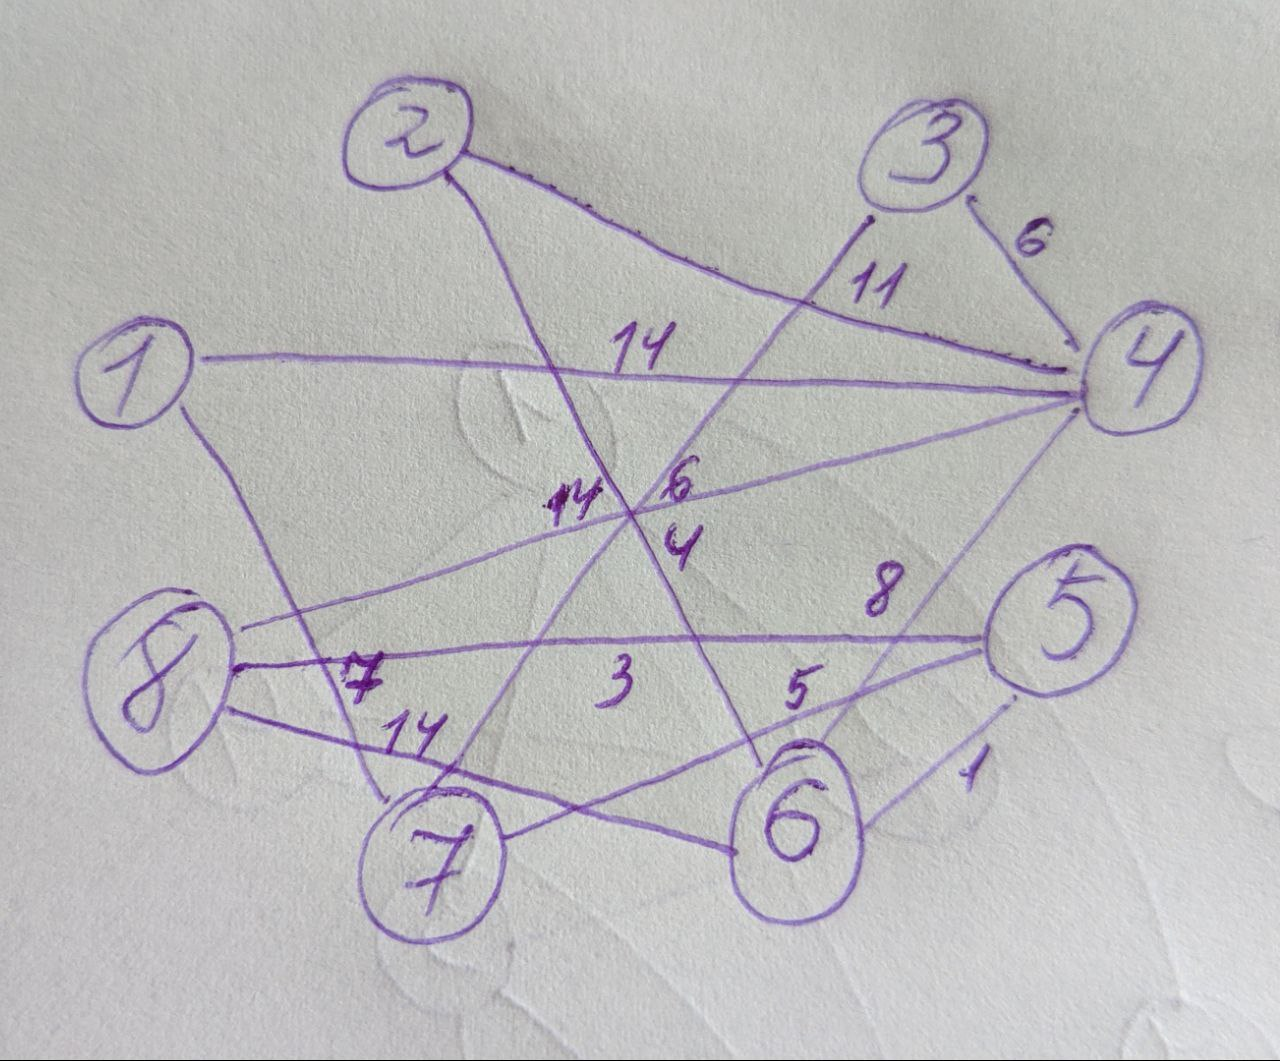 2
3
6
11
14
1
4
14
6
4
8
5
8
7
3
5
14
1
7
6